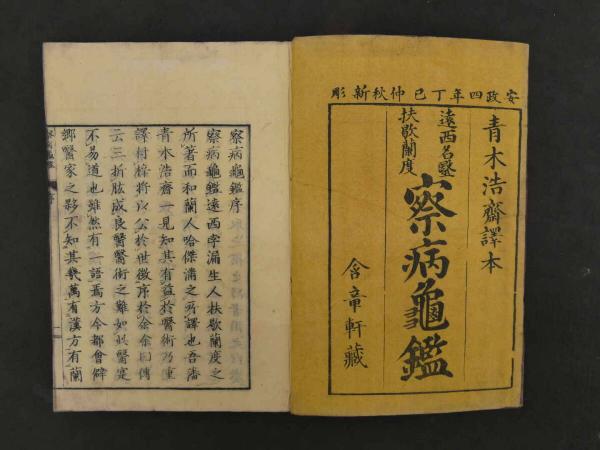 安政四年丁巳仲秋新彫
青木浩齋譯本
遠西名醫
扶歇蘭度
察病龜鑑
含章軒藏
察病龜鑑序
察病龜鑑遠西字漏生人扶歇蘭度之
所著而和蘭人哈傑滿之所譯也吾藩
青木浩齋一見知其有益於醫術乃重
譯付梓將以公於世徵序於余余曰傳
云三折肱成良醫醫術之難如此醫寔
不易道也雖然有一語焉方今都會僻
鄉醫家之夥不知其幾萬有漢方有蘭